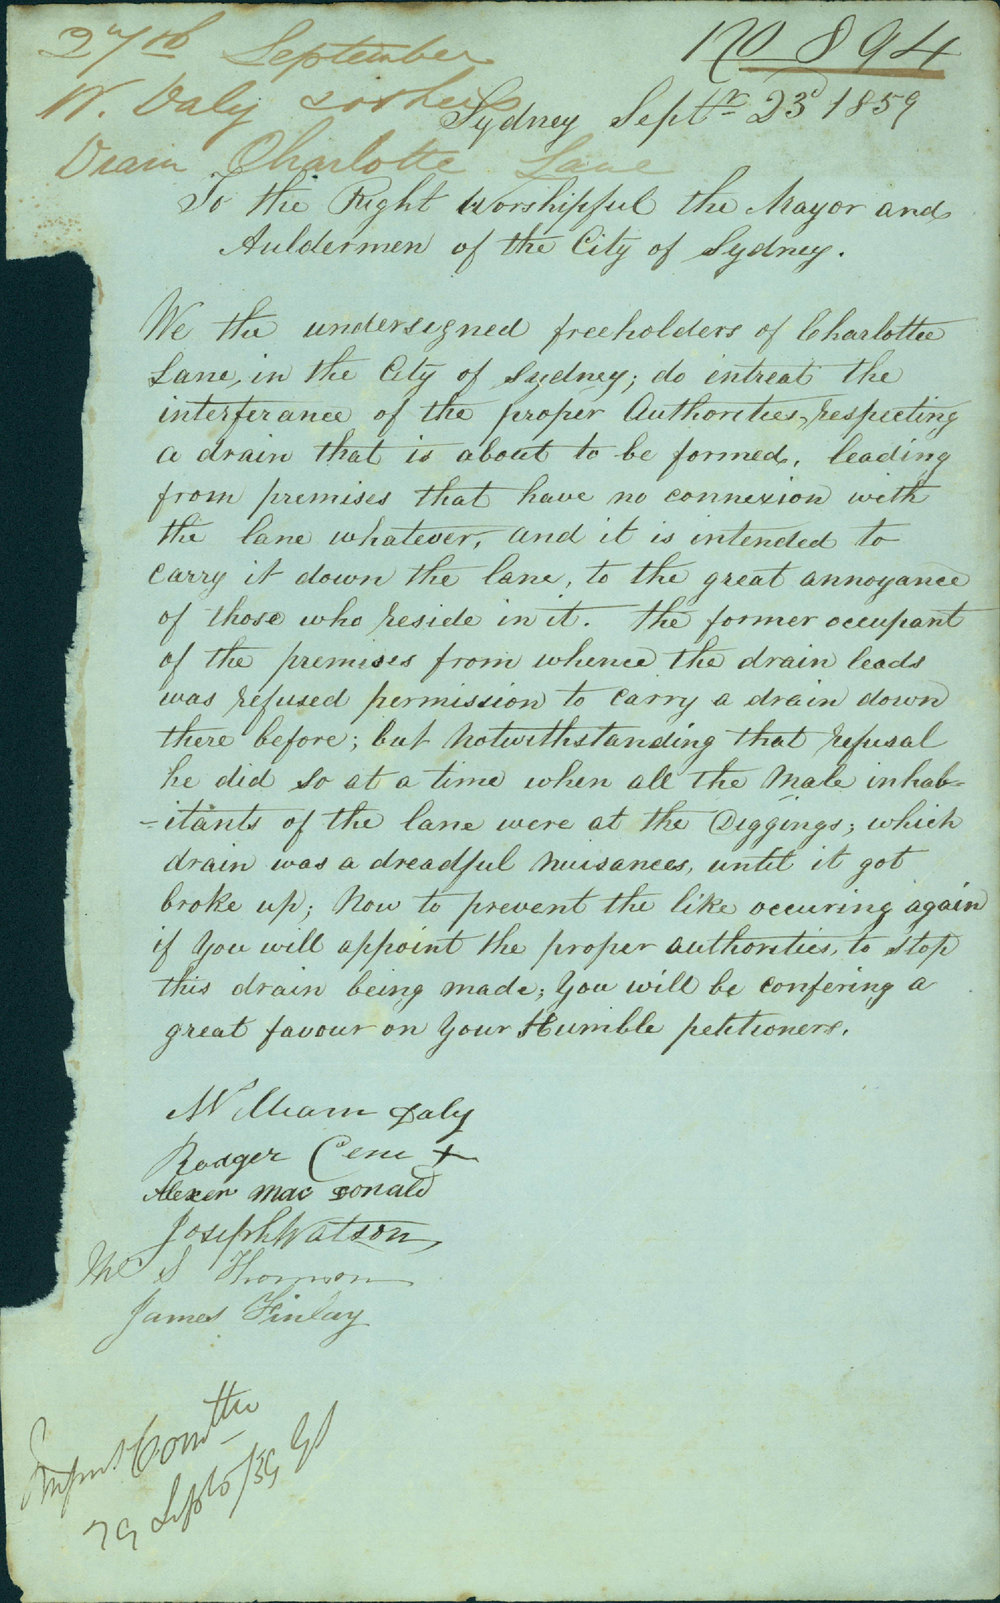 No 894
27th September
W. Daly & others
Drain Charlotte Lane
Sydney Septr 23d 1859
To the Right Worshipful the Mayor and
Auldermen of the City of Sydney.
We the undersigned freeholders of Charlotte
Lane, in the City of Sydney; do entreat the
interferance of the proper Authorities, respecting
a drain that is about to be formed, leading
from premises that have no connexion with
the lane whatever, and it is intended to
carry it down the lane, to the great annoyance
of those who reside in it. The former occupant
of the premises from whence the drain leads
was refused permission to carry a drain down
there before; but Notwithstanding that refusal
he did so at a time when all the Male inhab-
-itants of the lane were at the Diggings; which
drain was a dreadful Nuisances, until it got
broke up; Now to prevent the like occuring again
if you will appoint the proper authorities, to stop
this drain being made; you will be confering a
great favour on your Humble petitioners.
William Daly
Rodger Cene X
Alexer Mac Donald
Joseph Watson
S Thomson
James Finlay
Comttee
29 Sept /59